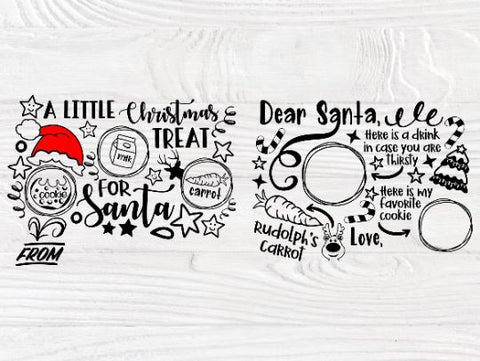 A LITTLE Christmas
TREAT
milk
cookie
FOR
carrot
Santa
FROM
Dear Santa,
Here is a drink
in case you are
Thirsty
Here is my
favorite
cookie
Rudolph's
Carrot
Love,